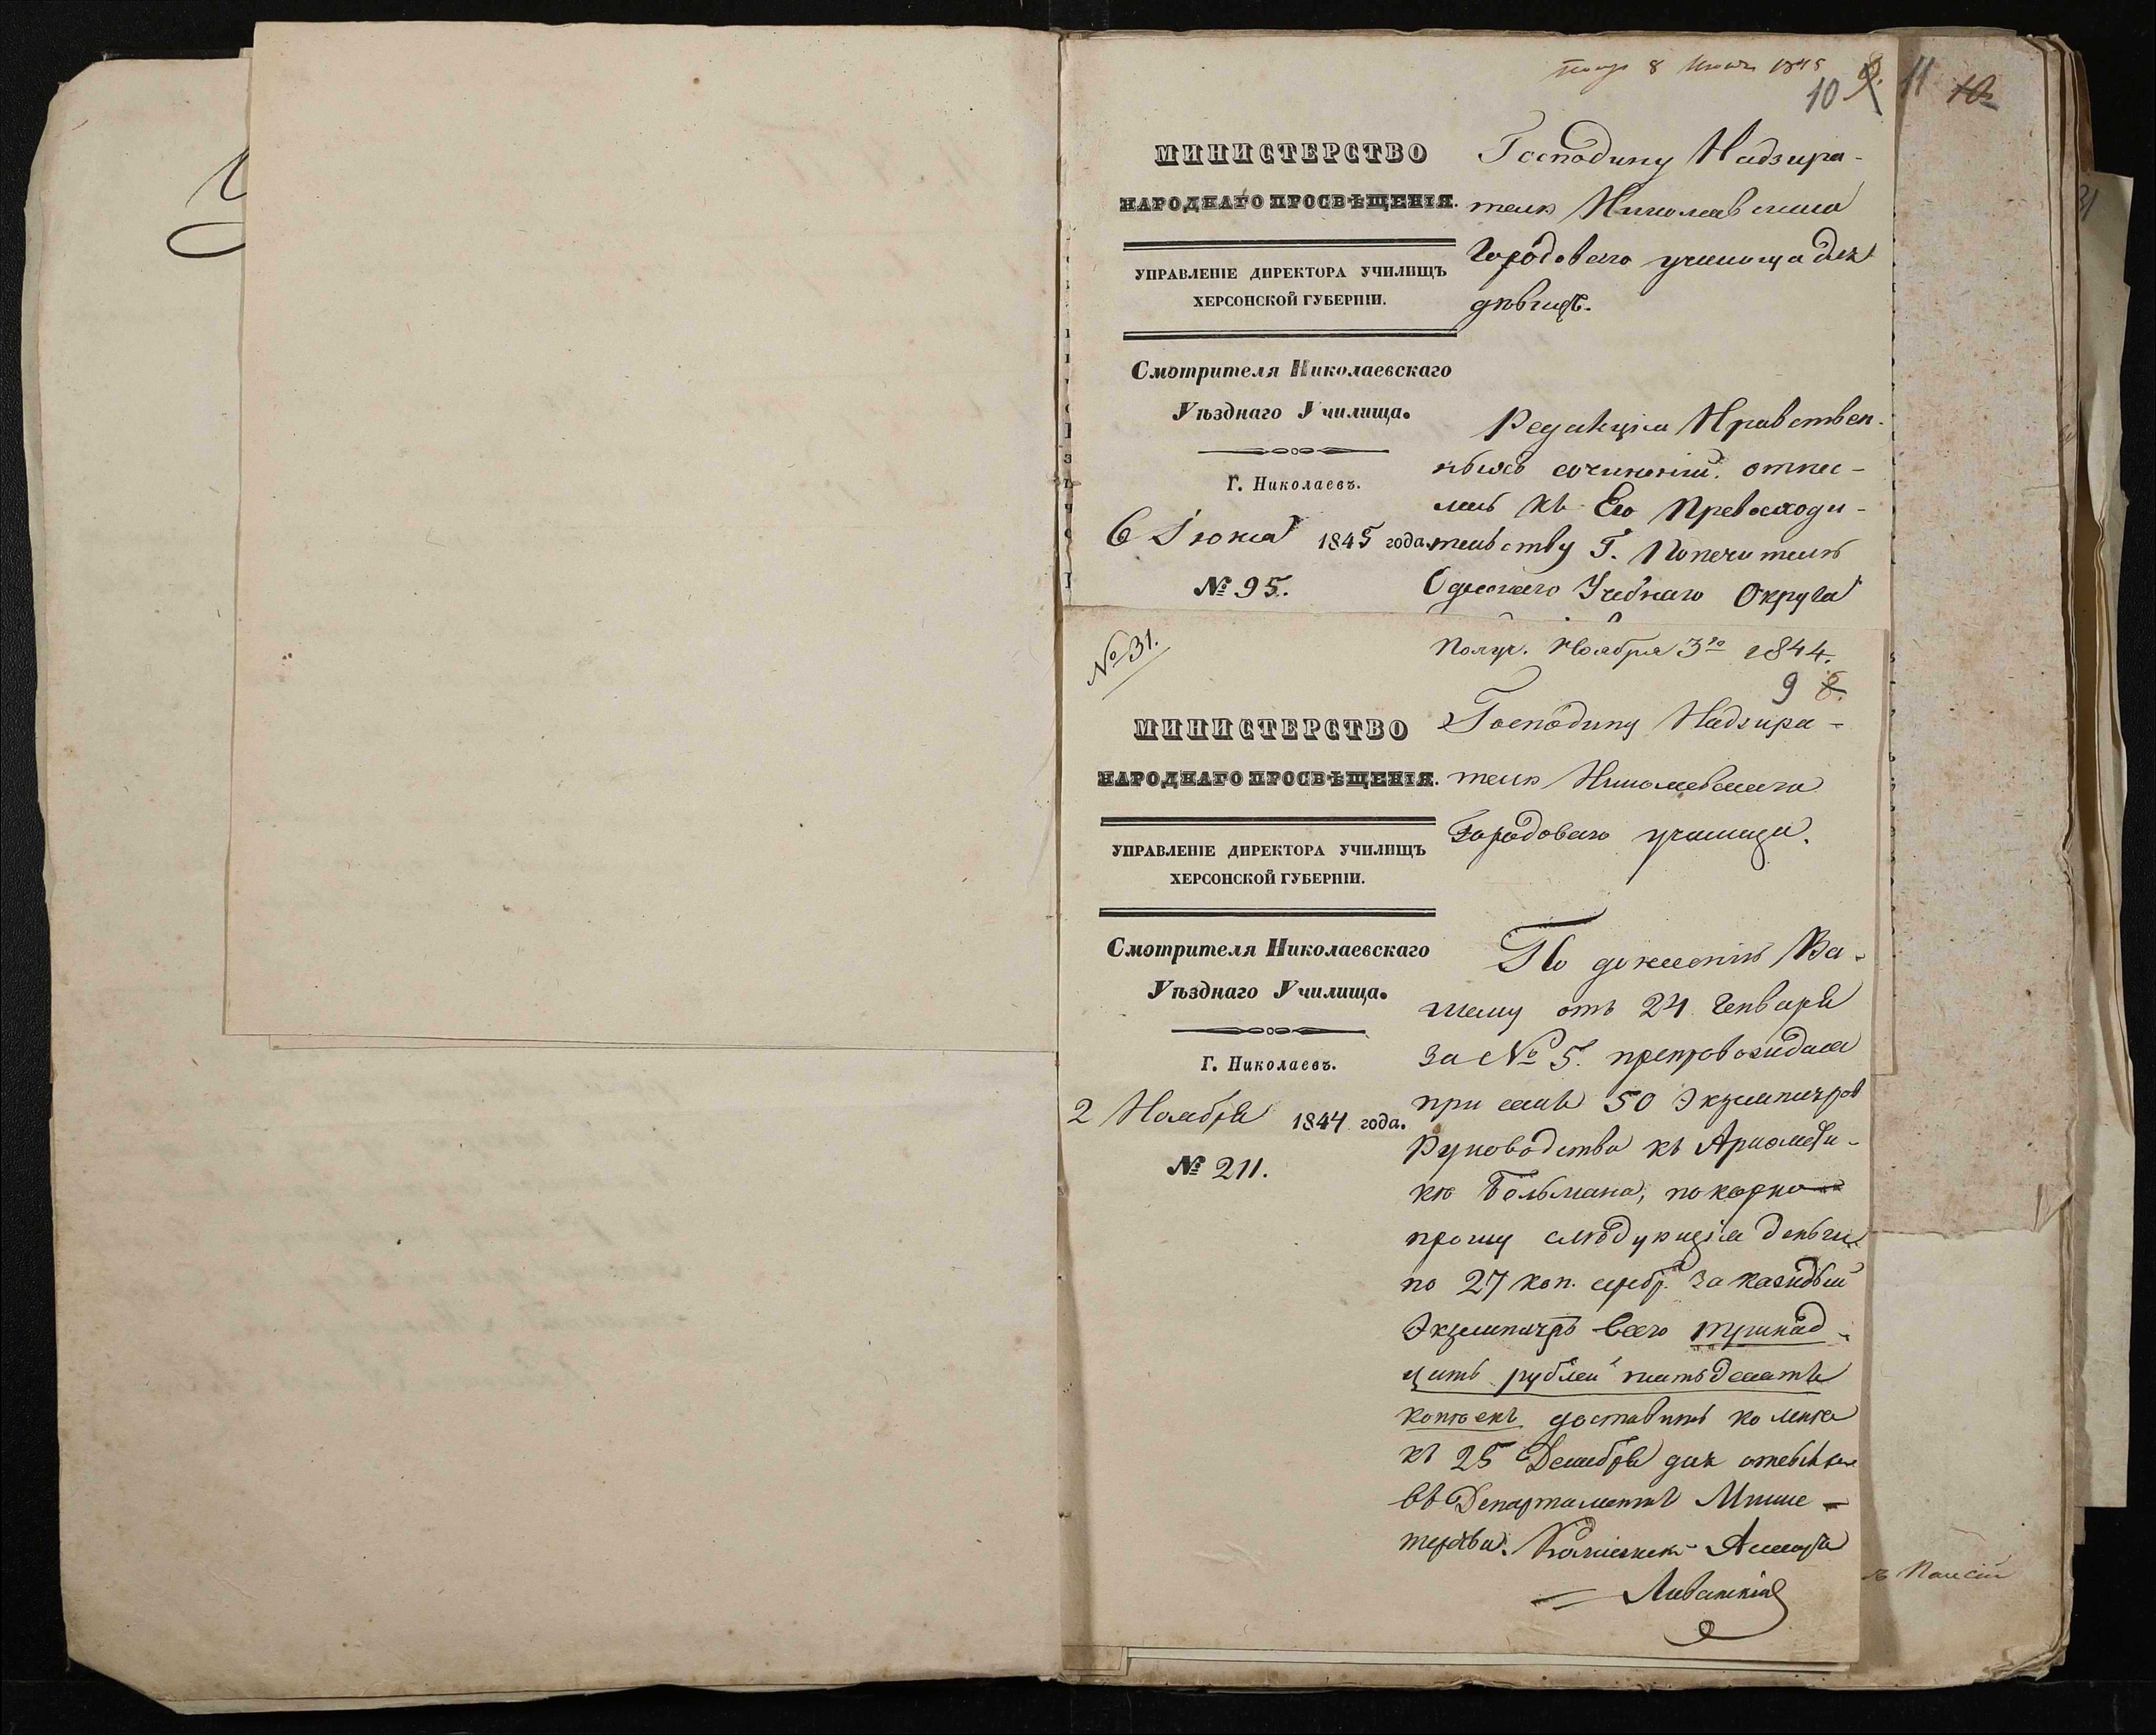 8 1845
10 11
МИНИСТЕРСТВО
НАРОДНАГО ПРОСВѢЩЕНІЯ.
УПРАВЛЕНІЕ ДИРЕКТОРА УЧИЛИЩЪ
ХЕРСОНСКОЙ ГУБЕРНІИ.
Смотрителя Николаевскаго
Уѣзднаго Училища.
Г. Николаевъ.
6 Іюня 1845 года.
№ 95.
Господину Надзира-
телю Николаевскаго
Городоваго училища для
дѣвицъ.
Редакція Нравствен-
ныхъ сочиненій отнес-
лась къ Его Превосходи-
тельству Г. Попечителю
Одесскаго Учебнаго Округа
№ 31.
Получ. Ноября 3го 1844.
9 8.
МИНИСТЕРСТВО
НАРОДНАГО ПРОСВѢЩЕНІЯ.
УПРАВЛЕНІЕ ДИРЕКТОРА УЧИЛИЩЪ
ХЕРСОНСКОЙ ГУБЕРНІИ.
Смотрителя Николаевскаго
Уѣзднаго Училища.
Г. Николаевъ.
2 Ноября 1844 года.
№ 211.
Господину Надзира-
телю Николаевскаго
Городоваго училища.
По донесенію Ва-
шему отъ 24 Генваря
за № 5. препровождая
при семъ 50 Экземпляров
Руководства къ Ариѳмети-
кѣ покорно
прошу слѣдующія деньги
по 27 коп. серебр. за каждый
Экземпляръ всего тринад-
цать рублей пятьдесятъ
копѣекъ доставить ко мнѣ
къ 25 Декабря для отсылки
въ Департаментъ Минис-
терства. Коллежск. Ассесоръ